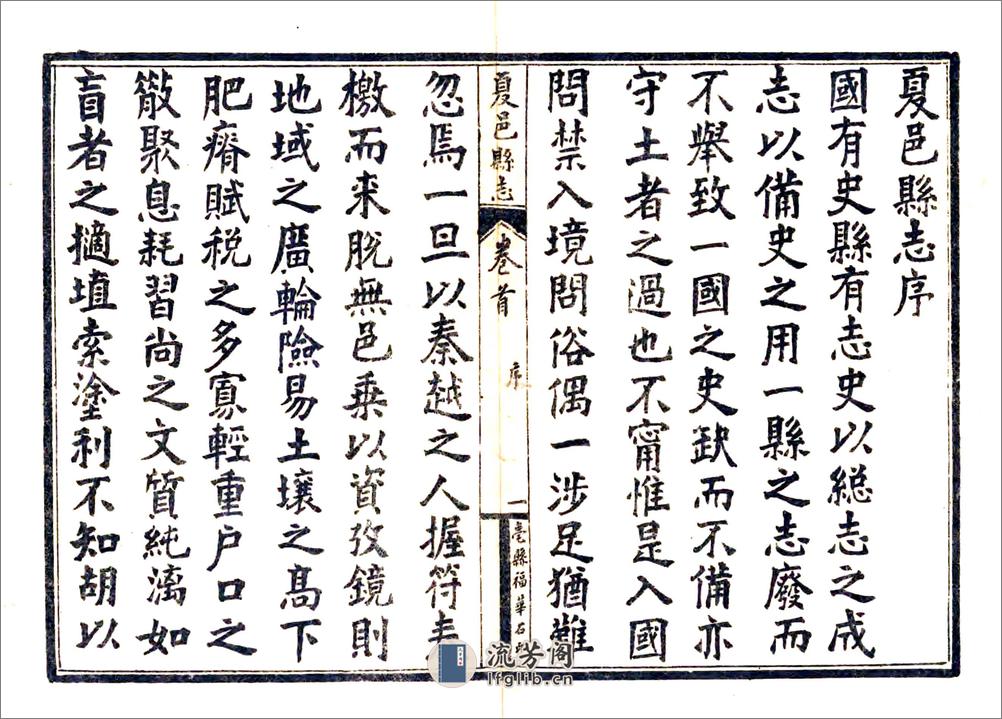 夏邑縣志序
國有史縣有志史以總志之成
志以備史之用一縣之志廢而
不舉致一國之史缺而不備亦
守土者之過也不甯惟是入國
問禁入境問俗偶一涉足猶難
夏邑縣志
卷首
序
一
亳縣福華石
忽焉一旦以秦越之人握符奉
檄而來脫無邑乘以資攷鏡則
地域之廣輪險易土壤之高下
肥瘠賦稅之多寡輕重户口之
散聚息耗習尚之文質純漓如
盲者之擿埴索塗利不知胡以
流芳阁
lfglib.cn